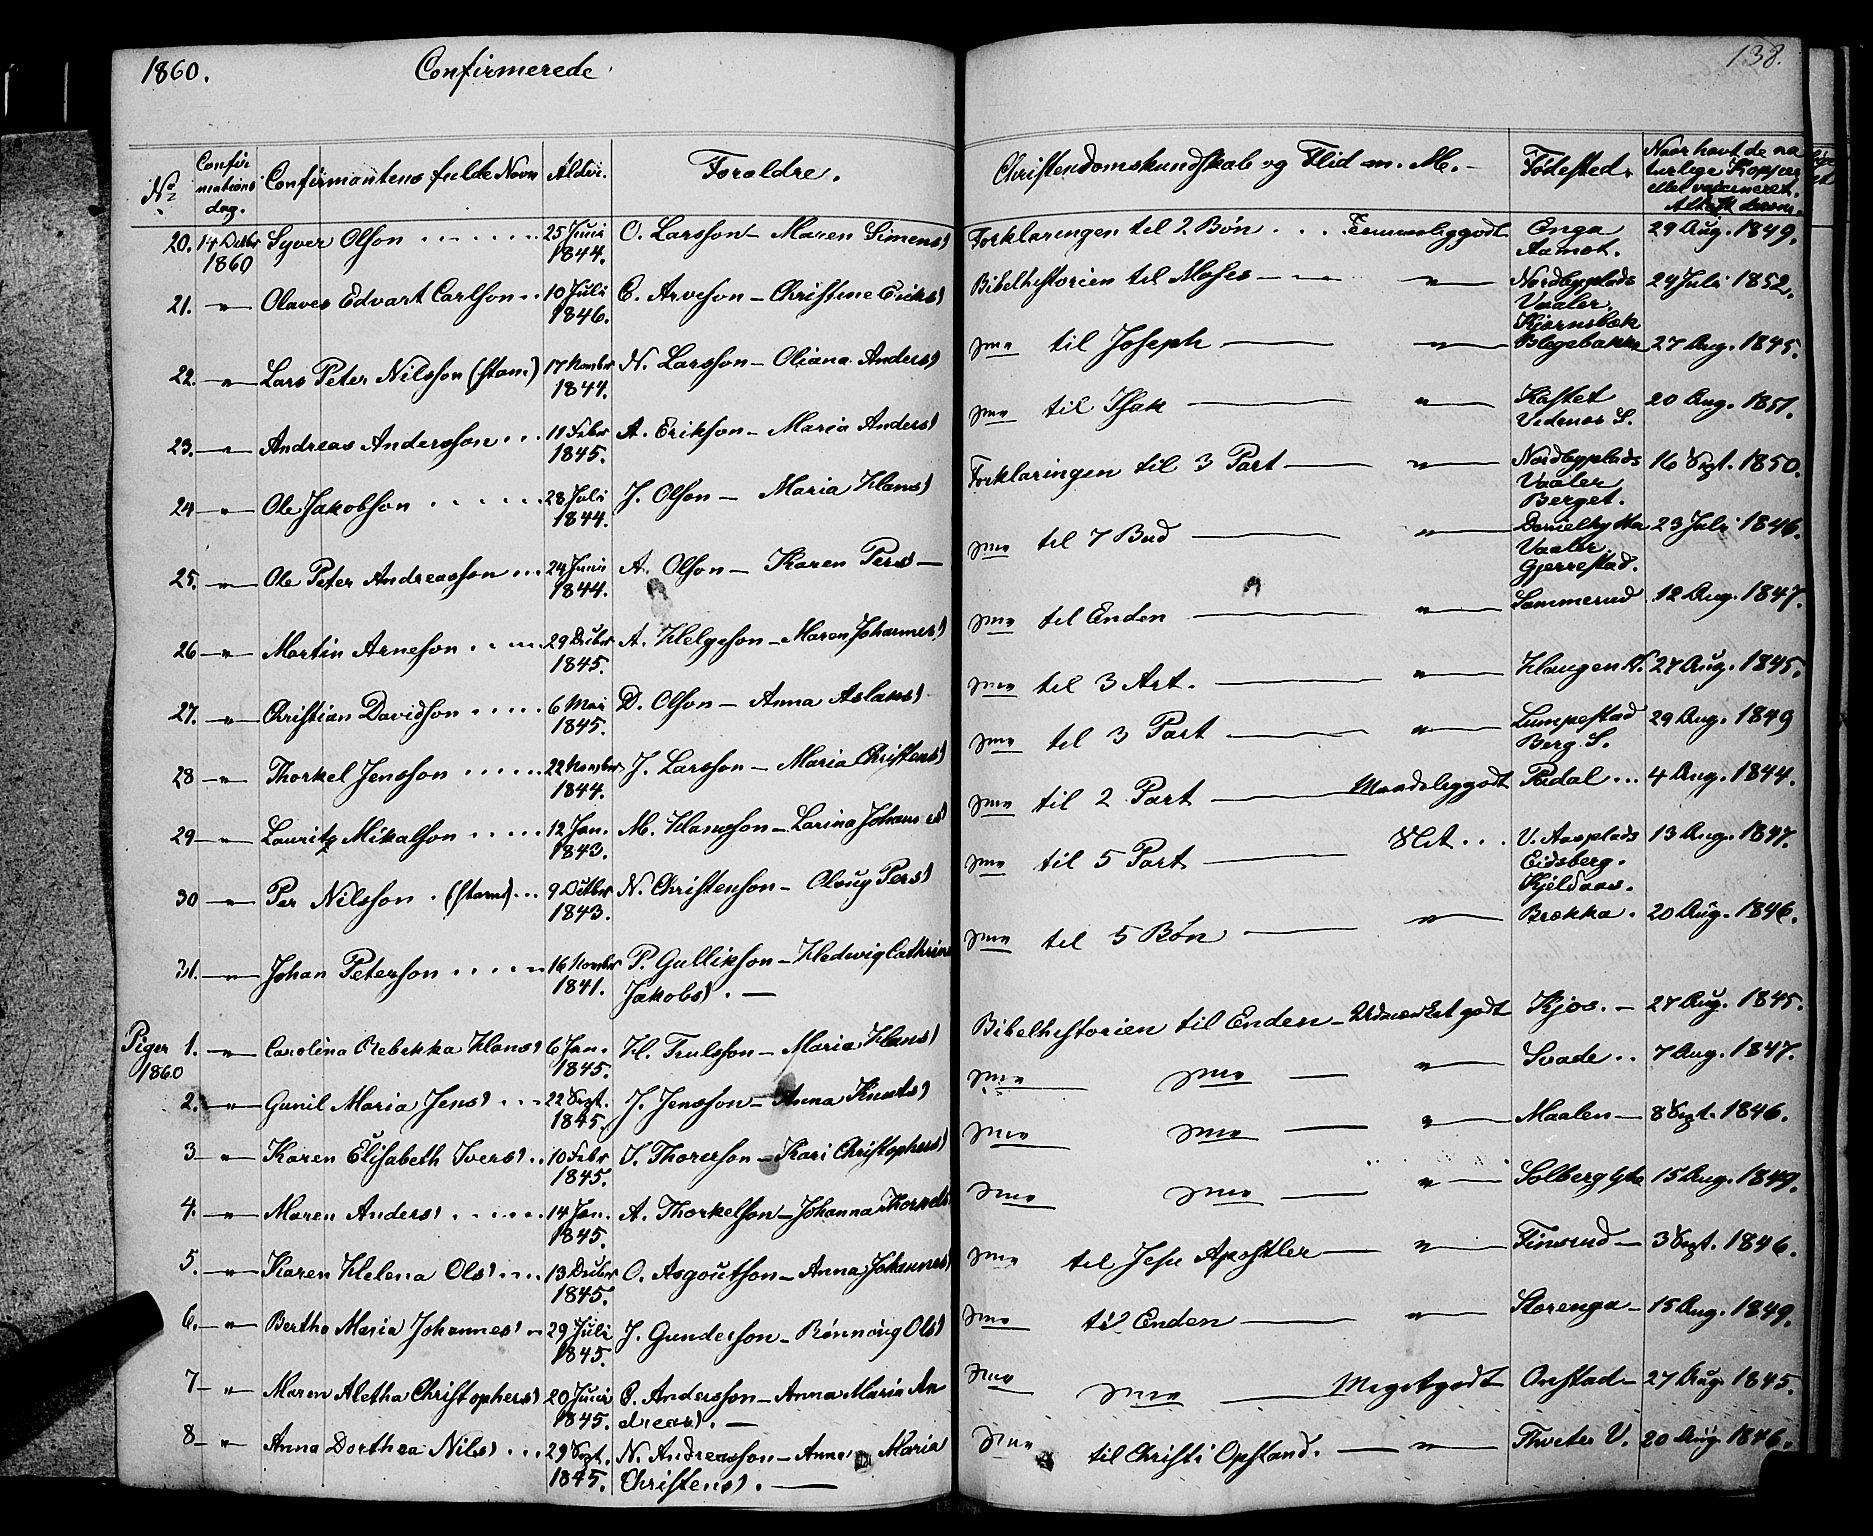 1860. Confirmerede. 138.
No Confirmations dag. Confirmantens fulde Navn Alder. Foroldre. Christendomskundskab og Flid m. M. Fødested. Naar havt de naturlege Kopper eller vaccineret.
20. 14 Octbr 1860 Syver Olson 25 Juni 1844. O. Larsson - Maren Simens) Forklaringen til 2 Bøn Enga Aamot. 29 Aug. 1849.
21. " Olaves Edvart Carlson 10 Juli 1846. C. Arveson - Christine Eriks) Bibelhistorien til Moses " Nordbyplads Vaaler. 24 Juli 1852.
22. " Lars Peter Nilsson (stam) 17 Novmbr 1844. N. Larsson - Oliana Anders) " til Joseph " Kjærnsbæk 27 Aug. 1845.
23. " Andreas Andersson 11 Febr 1845. A. Erikson - Maria Anders) " til Isak " Kastet 20 Aug. 1851.
24 " Ole Jakobson 28 Juli 1844. J. Olson - Maria Hans) Forklaringen til 3 Part " Nordbyplads Vaaler 16 Sept. 1850.
25. " Ole Peter Andreasson 24 Juni 1844. A. Olson - Karen Pers - " til 7 Bud " Berget. Vaaler 23 Juli 1846.
26 " Martin Arneson 29 Decbr 1845. A. Helgeson - Maren Johannes) " til Enden " Gjerrestad. Sammerud 12 Aug. 1847.
27. " Christian Davidson 6 Mai 1845. D. Olson - Anna Aslaks) " til 3 Art. " Haugen N. 27 Aug. 1845.
28 " Thorkel Jensson 22 Novmbr 1844. J. Larsson - Maria Christens) " til 3 Part " Lumpestad Berg. S. 29 Aug. 1849
29 " Lauritz Mikalson 12 Jan. 1843. M. Hansson - Larina Johannes) " til 2 Part Maadeleggodt Rødal 4 Aug. 1844.
30 " Per Nilsson (stam) 9 Octbr 1843. N. Christenson - Olaug Pers) " til 5 Part Slet V. Aasplads Eidsberg. 13 Aug. 1847.
31. " Johan Peterson 16 Novmbr 1841. P. Gullikson - Hedevig Cathrine Jakobs). - " til 5 Bøn " Kjeldaas. Brekka. 20 Aug. 1846.
Piger 1860
1. " Carolina Rebekka Hans) 6 Jan. 1845. H. Trulsson - Maria Hans) Bibelhistorien til Enden - Udmærket godt Kjos. - 27 Aug. 1845.
2. " Gunil Maria Jens) 22 Sept. 1845. J. Jensson - Anna Knuts) " " " Svade 7 Aug. 1847.
3 " Karen Elisabeth Ivers) 10 Febr 1845. I. Thorerson - Kari Christophers) " " " Maalen - 8 Sept. 1846.
4. " Maren Anders) 14 Jan. 1845. A. Thorkelson - Johanna Thorkels " " " Solberg 15 Aug. 1849.
5. " Karen Helena Ols) 13 Decbr 1845. O. Asgoutson - Anna Johannes) " til Jesu Apostler " Finsrud - 3 Sept. 1846.
6. " Bertha Maria Johannes) 29 Juli 1845. J. Gunderson - Rønnoug Ols) " til Enden " Storenga - 15 Aug. 1849.
7 " Maren Aletha Christophers) 20 Juni 1845. C. Andersson - Anna Maria Andreas). - " " Megetgodt Onstad - 27 Aug. 1845.
8 " Anna Dorthea Nils) 29 Sept. 1845. N. Andreasson - Anna Maria Christens). - " til Christi Opstand. " Thveter V. 20 Aug. 1846.